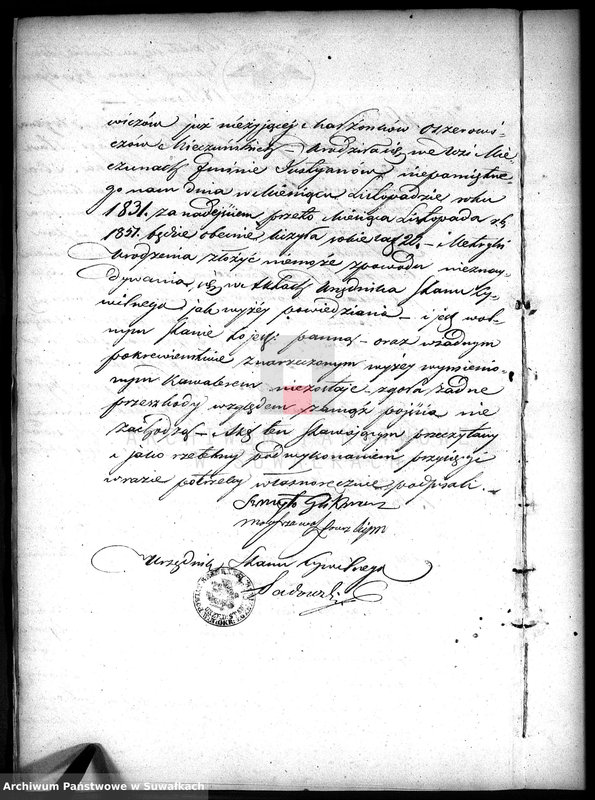 wiczów już nieżyjącej i małżonków Oszerowi-
czów Mieczuńskich – urodziła się we wsi Mie-
czunach Gminie Justyanów, niepamiętne-
go nam dnia w Miesiącu Listopadzie roku
1831. za nadejściem przeto Miesiąca Listopada rb
1857. będzie obecnie liczyła sobie lat 26. – i Metryki
urodzenia złożyć niemoże zpowodu nieznay-
dywania się w Aktach Urzędnika Stanu Cy-
wilnego jak wyżéy powiedziano – i jest wol-
nym stanie to jest: panną – oraz wżadnym
pokrewieństwie z narzeczonym wyżéy wymienio-
nym Kawalerem niezostaje zgoła żadne
przeszkody względem zamąż pójścia nie
zachodzą. – Akt ten stawającym przeczytany
i jako rzetelny pod wykonaniem przysięgi
wrazie potrzeby własnoręcznie podpisali. –
Urzędnik Stanu Cywilnego
Sadowski
Archiwum Państwowe w Suwałkach